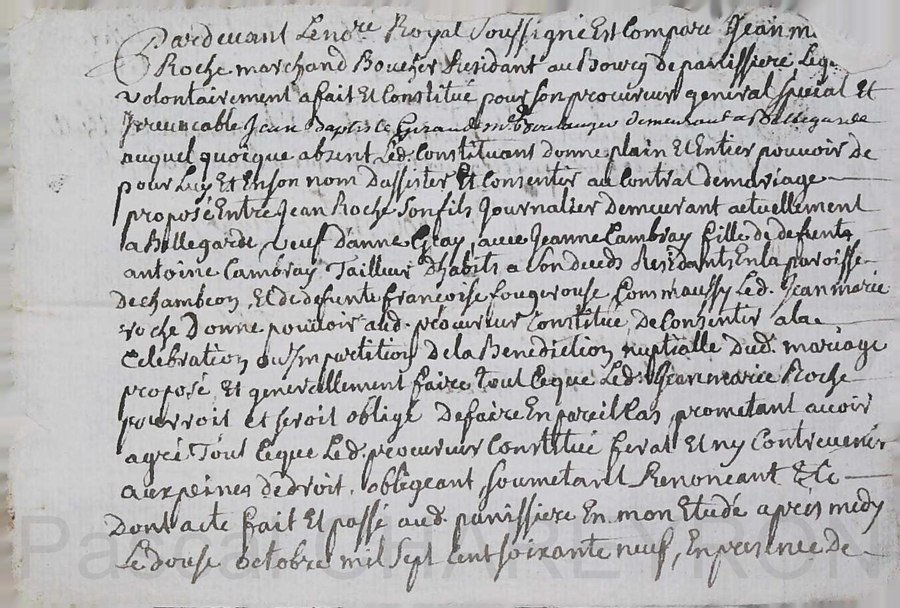 Pardevant Le nore Royal soussigné Est Comparu Jean m
Roche marchand Boucher Residant au Bourg de panissiere Leq
volontairement a fait Et Constitué pour son procureur general special Et
Jrrevocable Jean Baptiste Giraud me Boulanger demeurant a Bellegarde
auquel quoique absent Led. Constituant donne plain Et Entier pouvoir de
pour Luy Et En son nom D'assister Et Consentir au Contrat de mariage
proposé Entre Jean Roche son fils Journalier Demeurant actuellement
a Bellegarde, veuf d'anne Gray, avec Jeanne Cambray fille de defunt
antoine Cambray Tailleur d'habits a son deceds Residants En la paroisse
De chambeon, Et de defunte francoise fougerouse, Comm'aussy Led. Jean marie
roche Donne pouvoir aud. procureur Constitué, De Consentir a la
Celebration ou Jmpartition de la Benediction nuptialle Dud. mariage
proposé, Et generallement faire Tout Ceque Led. Jean marie Roche
pourroit et seroit obligé De faire En pareil Cas, prometant avoir
agré Tout Ceque Led. procureur Constitué ferat Et ny Contrevenir
aux peines De droit, oblegeant soumetant Renoncant &c
Dont acte fait Et passé aud. panissiere En mon Etude après midy
Le douse octobre mil sept Cent soixante neuf, En presence de
Pascal CHAREYRON